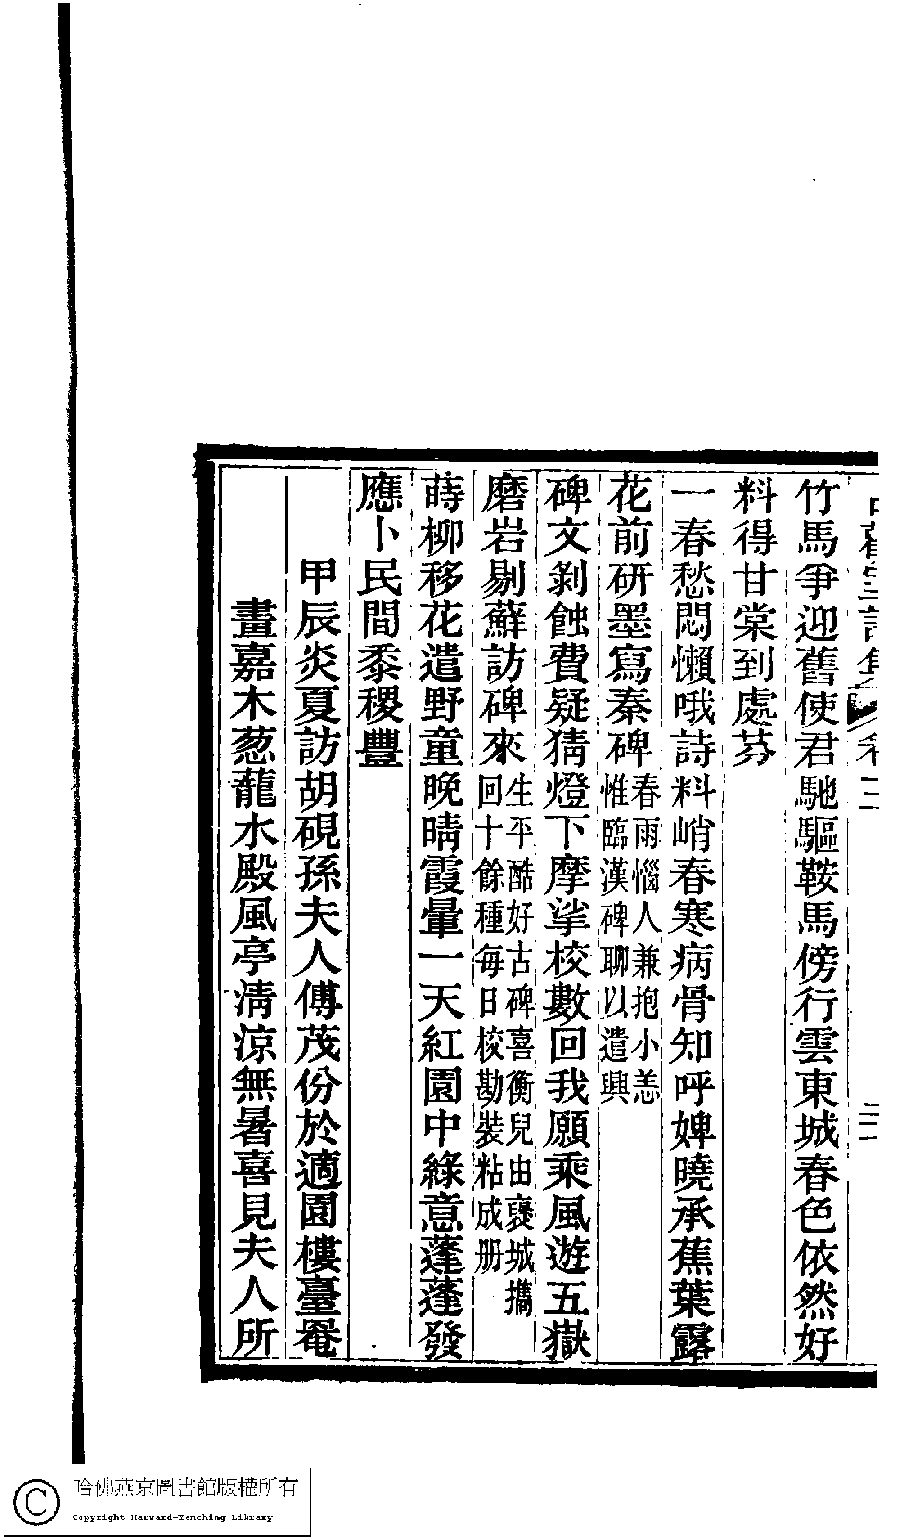 竹馬爭迎舊使君馳驅鞍馬傍行雲東城春色依然好
料得甘棠到處芬
一春愁悶懶哦詩料峭春寒病骨知呼婢曉承蕉葉露
花前研墨寫秦碑
春雨惱人兼抱小恙
惟臨漢碑聊以遣興
碑文剝蝕費疑猜燈下摩挲校數回我願乘風遊五嶽
磨岩剔蘚訪碑來
生平酷好古碑喜衡兒由襃城攜
回十餘種每日校勘裝粘成册
蒔柳移花遣野童晚晴霞暈一天紅園中綠意蓬蓬發
應卜民間黍稷豐
甲辰炎夏訪胡硯孫夫人傅茂份於適園樓臺罨
畫嘉木葱蘢水殿風亭淸涼無暑喜見夫人所
哈佛燕京圖書館版權所有
Copyright Harvard-Yenching Library